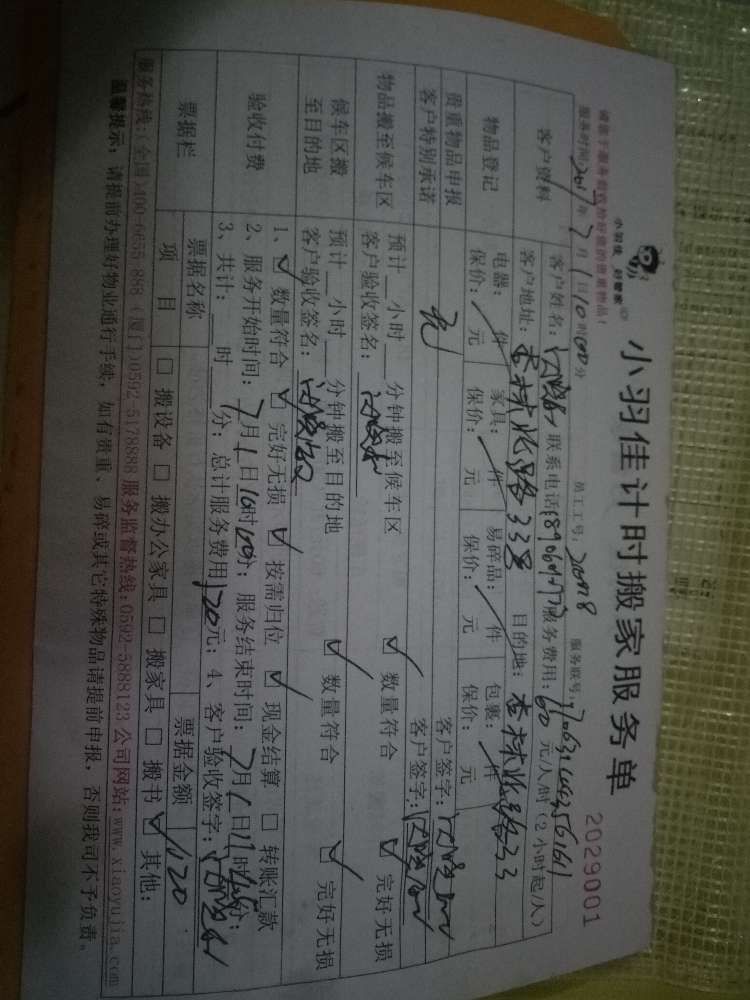 小羽佳 好管家
小羽佳计时搬家服务单
2029001
请您于服务前收拾好您的贵重物品！
服务时间：2017年7月1日10时00分 员工工号： 服务账号：
客户资料 客户姓名： 联系电话 服务费用：60元/人/时（2小时起/人）
客户地址：杏林北路33号 目的地：杏林北路33
物品登记 电器：/件 家具：/件 易碎品：/件 包裹：/件
保价： 元 保价： 元 保价： 元 保价： 元
贵重物品申报 无 客户签字：
客户特别承诺 客户签字：
物品搬至候车区 预计__小时__分钟搬至候车区 ☑ 数量符合 ☑ 完好无损
客户验收签名：
候车区搬至目的地 预计__小时__分钟搬至目的地 ☑ 数量符合 ☑ 完好无损
客户验收签名：
验收付费 1、☑ 数量符合 ☑ 完好无损 ☑ 按需归位 ☑ 现金结算 □ 转账汇款
2、服务开始时间：7月1日10时00分；服务结束时间：7月1日11时 分；
3、共计： 时 分；总计服务费用120元；4、客户验收签字：
票据栏 票据名称 票据金额 120
项目 □ 搬设备 □ 搬办公家具 □ 搬家具 □ 搬书 ☑ 其他：
服务热线：（全国）400-6655-888（厦门）0592-5178888 服务监督热线：0592-5888123 公司网站：www.xiaoyujia.com
温馨提示：请提前办理好物业通行手续，如有贵重、易碎或其它特殊物品请提前申报，否则我司不予负责。